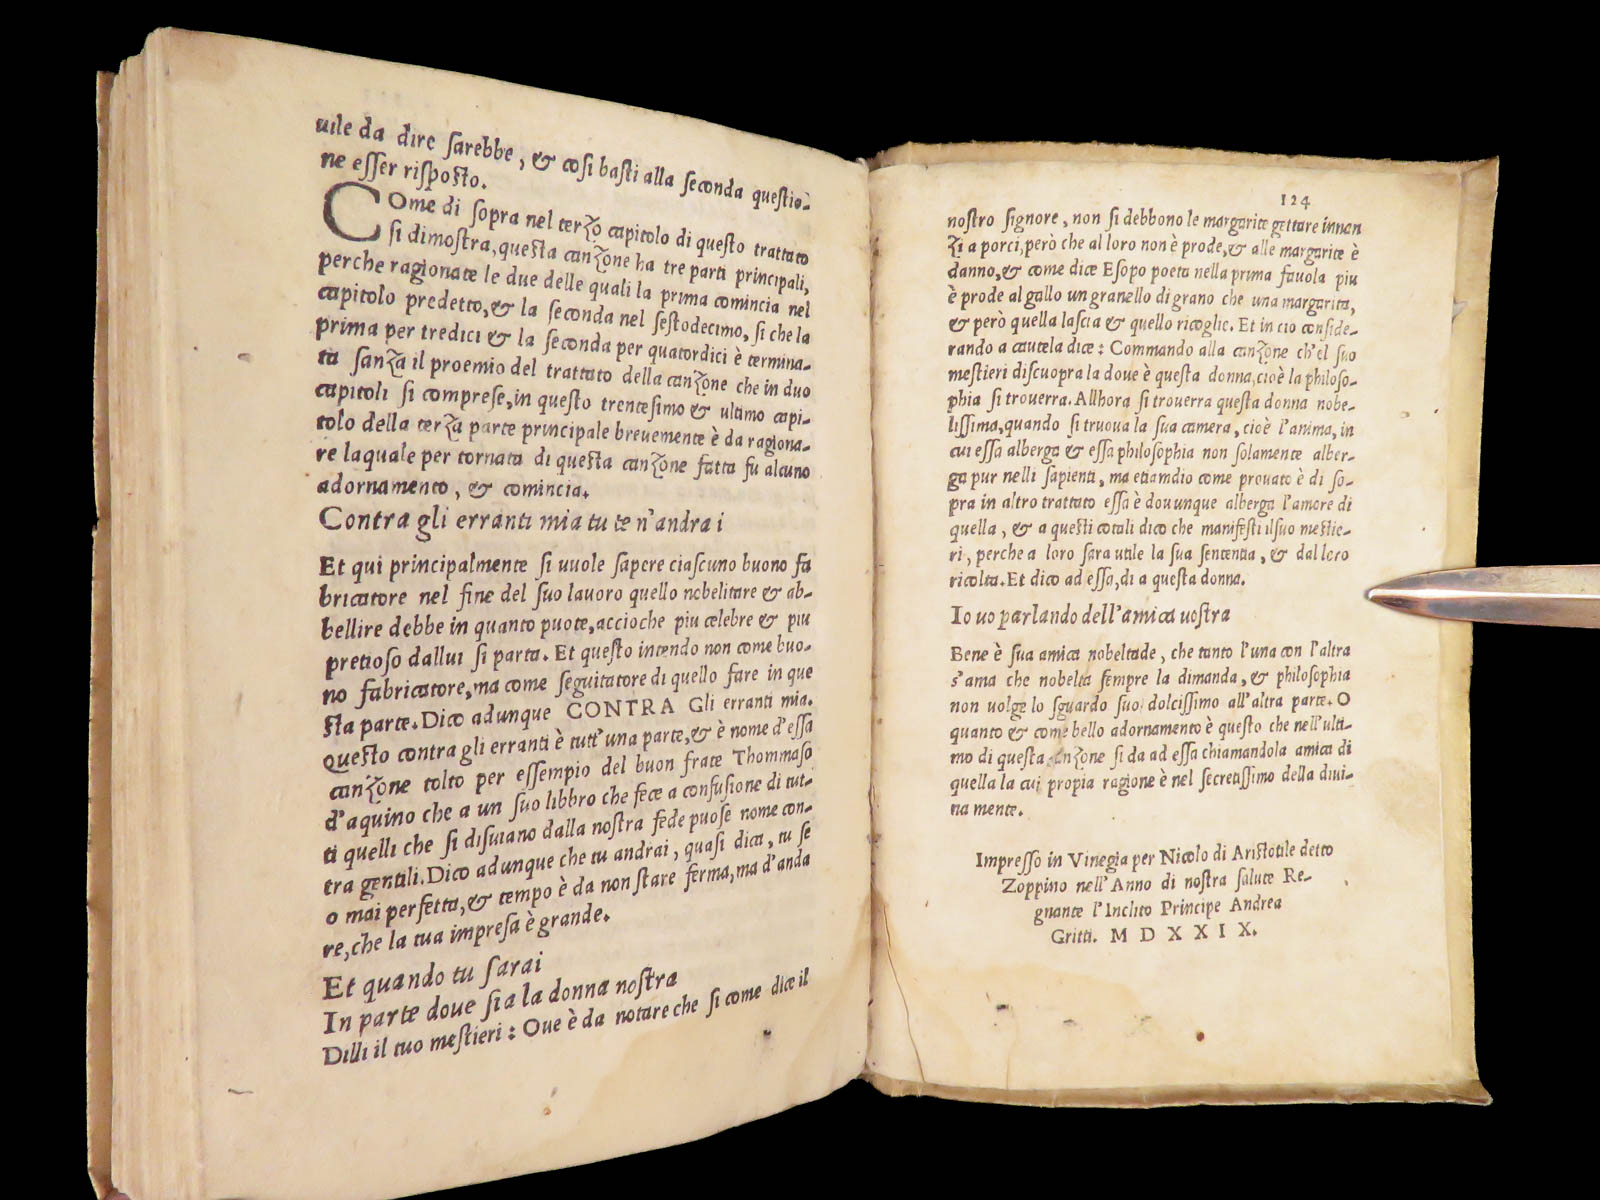 uile da dire sarebbe, & cosi basti alla seconda questio-
ne esser risposto.
COme di sopra nel terzo capitolo di questo trattato
si dimostra, questa canzone ha tre parti principali,
perche ragionate le due delle quali la prima comincia nel
capitolo predetto, & la seconda nel sestodecimo, si che la
prima per tredici & la seconda per quatordici è termina-
ta sanza il proemio del trattato della canzone che in duo
capitoli si comprese, in questo trentesimo & ultimo capi-
tolo della terza parte principale breuemente è da ragiona-
re laquale per tornata di questa canzone fatta fu alcuno
adornamento, & comincia.
Contra gli erranti mia tu te n'andrai
Et qui principalmente si uuole sapere ciascuno buono fa
bricatore nel fine del suo lauoro quello nobelitare & ab-
bellire debbe in quanto puote, accioche piu celebre & piu
pretioso dallui si parta. Et questo intendo non come buo-
no fabricatore, ma come seguitatore di quello fare in que
sta parte. Dico adunque CONTRA Gli erranti mia.
questo contra gli erranti è tutt'una parte, & è nome d'essa
canzone tolto per essempio del buon frate Thommaso
d'aquino che a un suo libbro che fece a confusione di tut-
ti quelli che si disuiano dalla nostra fede puose nome con-
tra gentili. Dico adunque che tu andrai, quasi dica, tu se
o mai perfetta, & tempo è da non stare ferma, ma d'anda
re, che la tua impresa è grande.
Et quando tu sarai
In parte doue sia la donna nostra
Dilli il tuo mestieri: Oue è da notare che si come dice il
124
nostro signore, non si debbono le margarite gettare innan
zi a porci, però che al loro non è prode, & alle margarite è
danno, & come dice Esopo poeta nella prima fauola piu
è prode al gallo un granello di grano che una margarita,
& però quella lascia & quello ricoglie. Et in cio conside-
rando a cautela dice: Commando alla canzone ch'el suo
mestieri discuopra la doue è questa donna, cioè la philoso-
phia si trouerra. Allhora si trouerra questa donna nobe-
lissima, quando si truoua la sua camera, cioè l'anima, in
cui essa alberga & essa philosophia non solamente alber-
ga pur nelli sapienti, ma etiamdio come prouato è di so-
pra in altro trattato essa è douunque alberga l'amore di
quella, & a questi cotali dico che manifesti il suo mestie-
ri, perche a loro sara utile la sua sententia, & dal loro
ricolta. Et dico ad essa, di a questa donna.
Io uo parlando dell'amica uostra
Bene è sua amica nobeltade, che tanto l'una con l'altra
s'ama che nobelta sempre la dimanda, & philosophia
non uolge lo sguardo suo dolcissimo all'altra parte. O
quanto & come bello adornamento è questo che nell'ulti-
mo di questa canzone si da ad essa chiamandola amica di
quella la cui propia ragione è nel secretissimo della diui-
na mente.
Impresso in Vinegia per Nicolo di Aristotile detto
Zoppino nell'Anno di nostra salute Re-
gnante l'Inclito Principe Andrea
Gritti. M D X X I X.